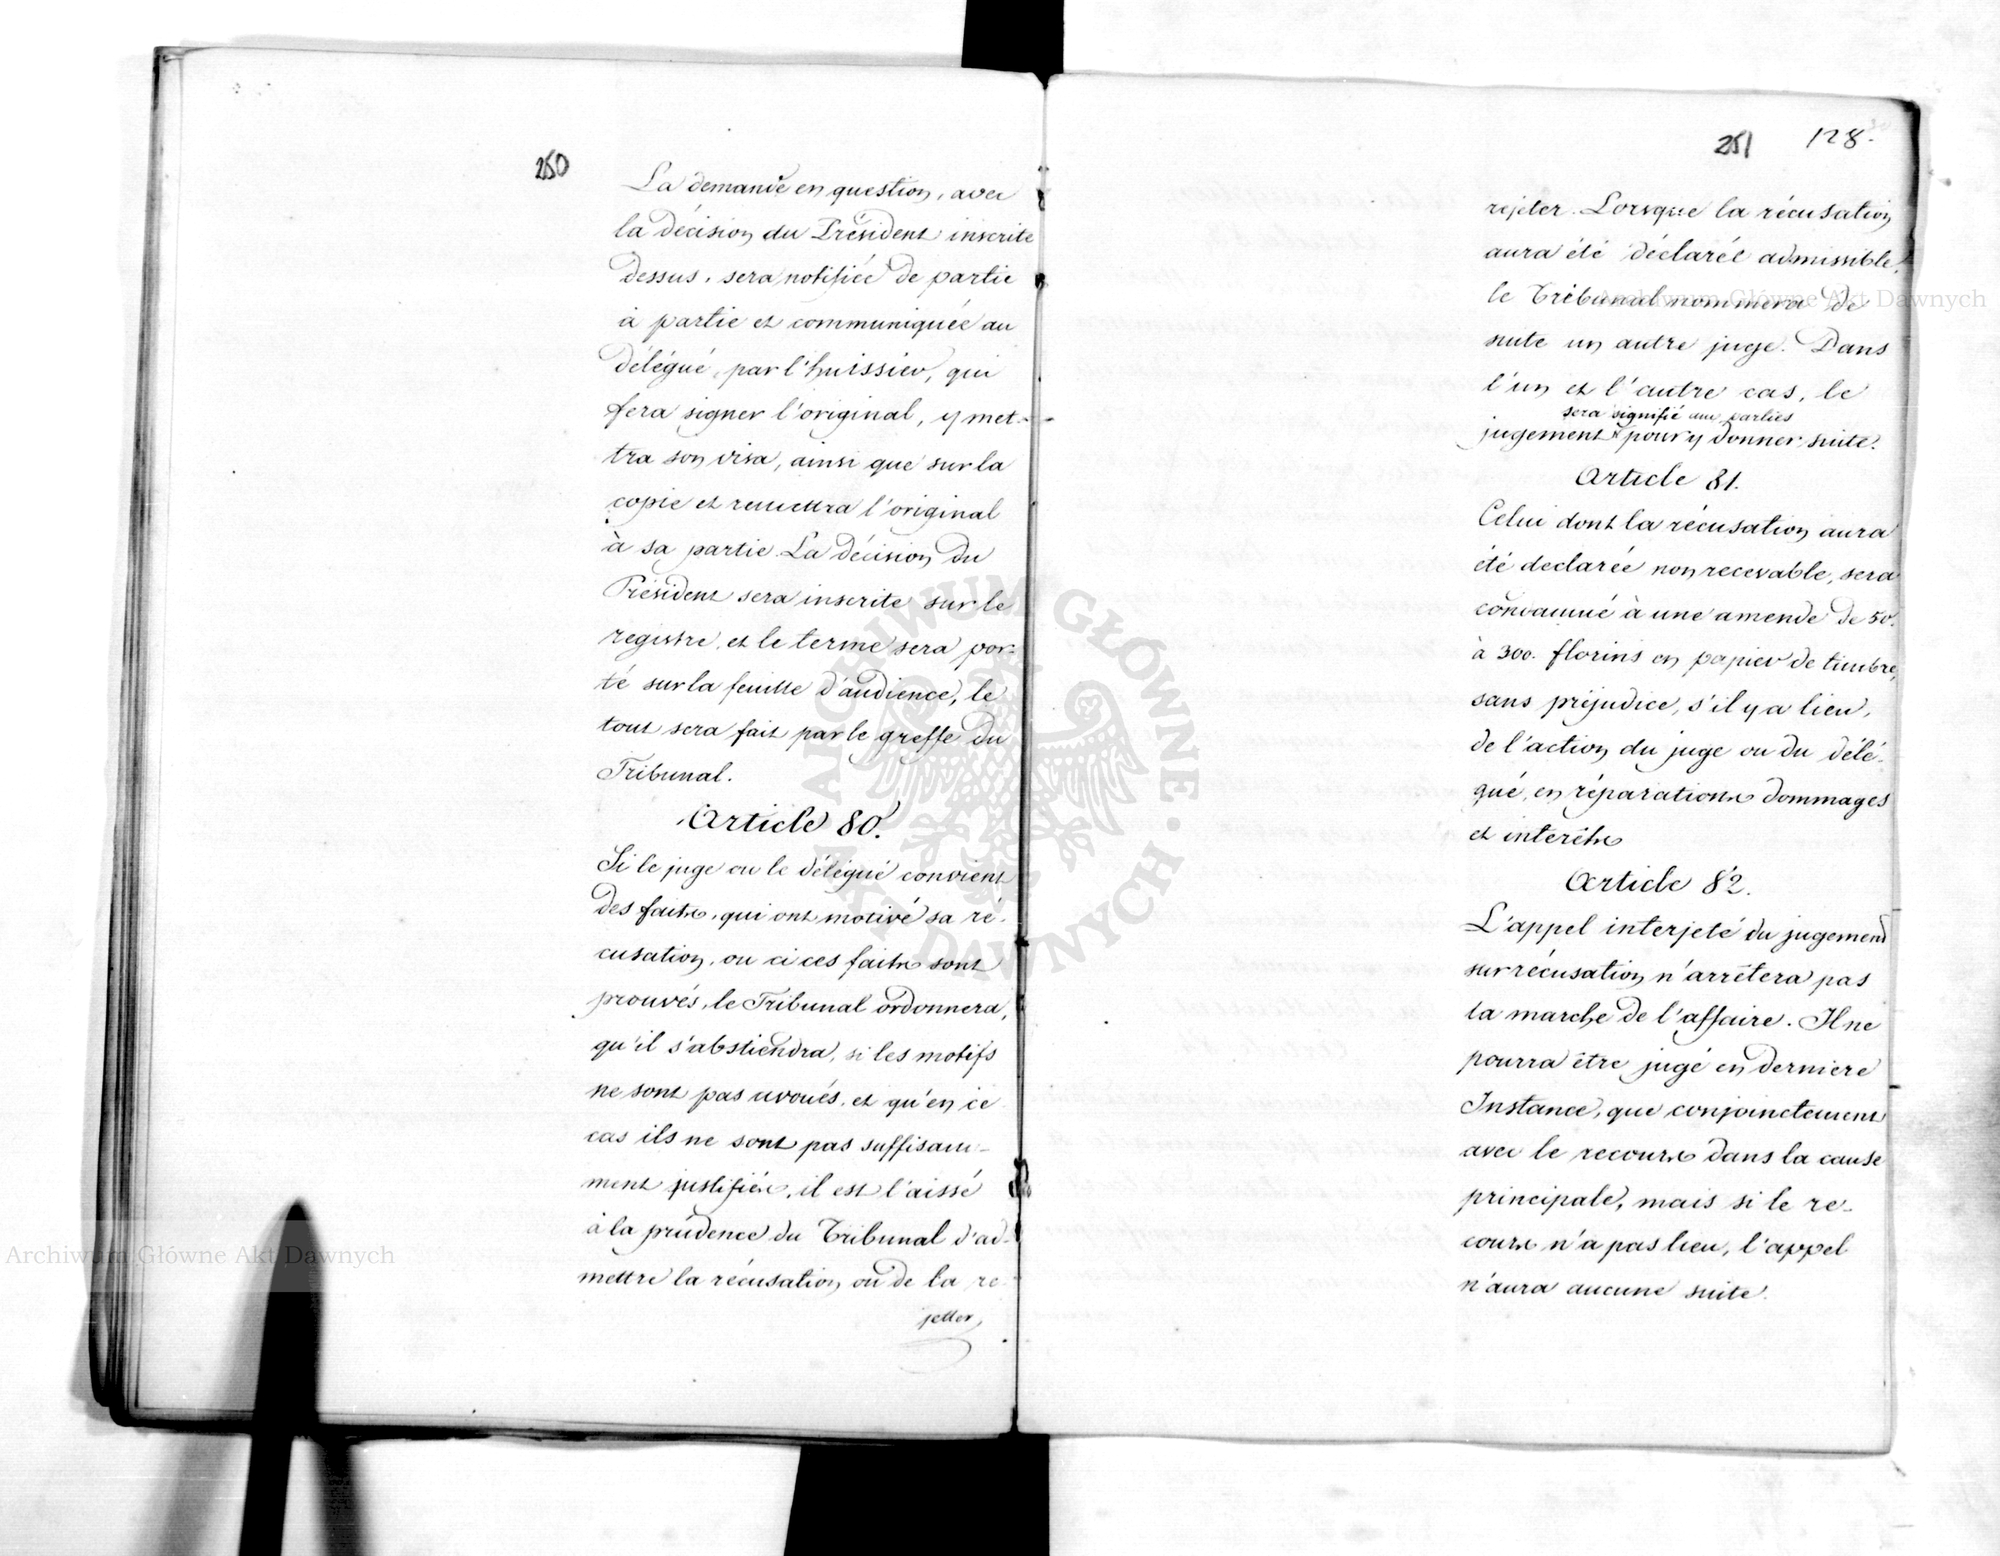 250
La demande en question, avec
la décision du Président inscrite
dessus, sera notifiée de partie
à partie et communiquée au
délégué, par l'huissier, qui
fera signer l'original, y met-
tra son visa, ainsi que sur la
copie et remettra l'original
à sa partie. La décision du
Président sera inscrite sur le
registre, et le terme sera por-
té sur la feuille d'audience, le
tout sera fait par le greffe du
Tribunal.
Article 80.
Si le juge ou le délégué convient
des faits, qui ont motivé sa ré-
cusation, ou ci ces faits sont
prouvés, le Tribunal ordonnera,
qu'il s'abstiendra, si les motifs
ne sont pas avoués, et qu'en ce
cas ils ne sont pas suffisam-
ment justifiés, il est l'aissé
à la prudence du Tribunal d'ad-
mettre la récusation ou de la re-
jetter
251 128.
rejeter. Lorsque la récusation
aura été déclarée admissible,
le Tribunal nommera de
suite un autre juge. Dans
l'un et l'autre cas, le
sera signifié aux parties
jugement pour y donner suite.
Article 81.
Celui dont la récusation aura
été declarée non recevable, sera
condamné à une amende de 50.
à 300. florins en papier de timbre,
sans préjudice, s'il y a lieu,
de l'action du juge ou du délé-
gué, en réparations dommages
et interêts
Article 82.
L'appel interjeté du jugement
sur récusation n'arrêtera pas
la marche de l'affaire. Il ne
pourra être jugé en derniere
Instance, que conjoinctement
avec le recours dans la cause
principale, mais si le re-
cours n'a pas lieu, l'appel
n'aura aucune suite.
Archiwum Główne Akt Dawnych
Archiwum Główne Akt Dawnych
ARCHIWUM GŁÓWNE AKT DAWNYCH